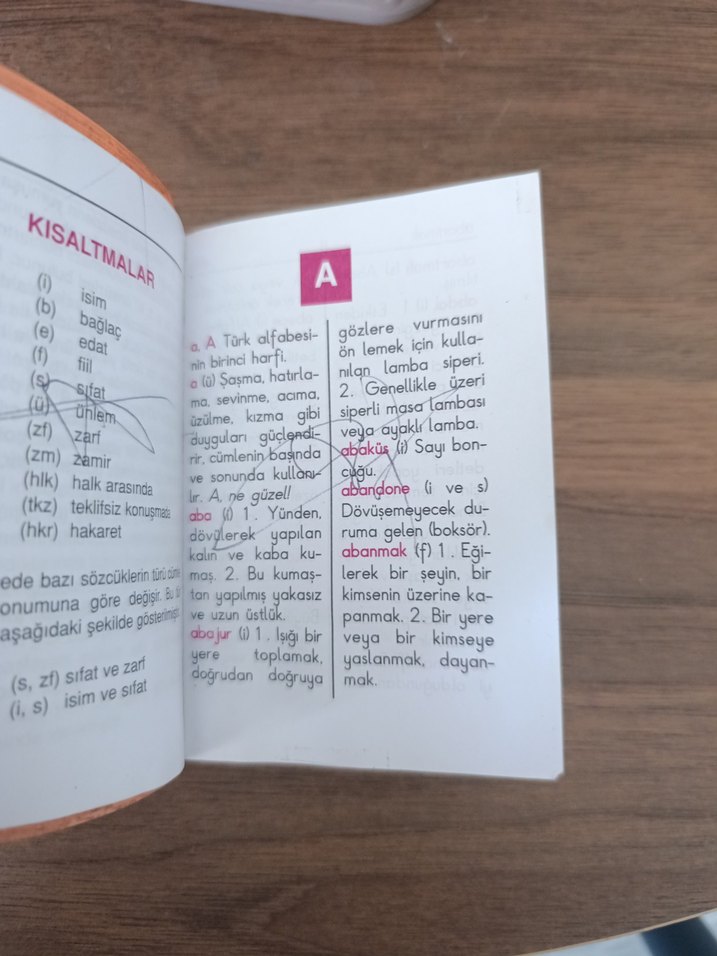 KISALTMALAR
(i) isim
(b) bağlaç
(e) edat
(f) fiil
(s) sıfat
(ü) ünlem
(zf) zarf
(zm) zamir
(hlk) halk arasında
(tkz) teklifsiz konuşmada
(hkr) hakaret
ede bazı sözcüklerin türü
onumuna göre değişir. Bu
aşağıdaki şekilde gösterilmişti
(s, zf) sıfat ve zarf
(i, s) isim ve sıfat
A
a, A Türk alfabesi-
nin birinci harfi.
a (ü) Şaşma, hatırla-
ma, sevinme, acıma,
üzülme, kızma gibi
duyguları güçlendi-
rir, cümlenin başında
ve sonunda kullanı-
lır. A, ne güzel!
aba (i) 1. Yünden,
dövülerek yapılan
kalın ve kaba ku-
maş. 2. Bu kumaş-
tan yapılmış yakasız
ve uzun üstlük.
abajur (i) 1. Işığı bir
yere toplamak,
doğrudan doğruya
gözlere vurmasını
ön lemek için kulla-
nılan lamba siperi.
2. Genellikle üzeri
siperli masa lambası
veya ayaklı lamba.
abaküs (i) Sayı bon-
cuğu.
abandone (i ve s)
Dövüşemeyecek du-
ruma gelen (boksör).
abanmak (f) 1. Eği-
lerek bir şeyin, bir
kimsenin üzerine ka-
panmak. 2. Bir yere
veya bir kimseye
yaslanmak, dayan-
mak.